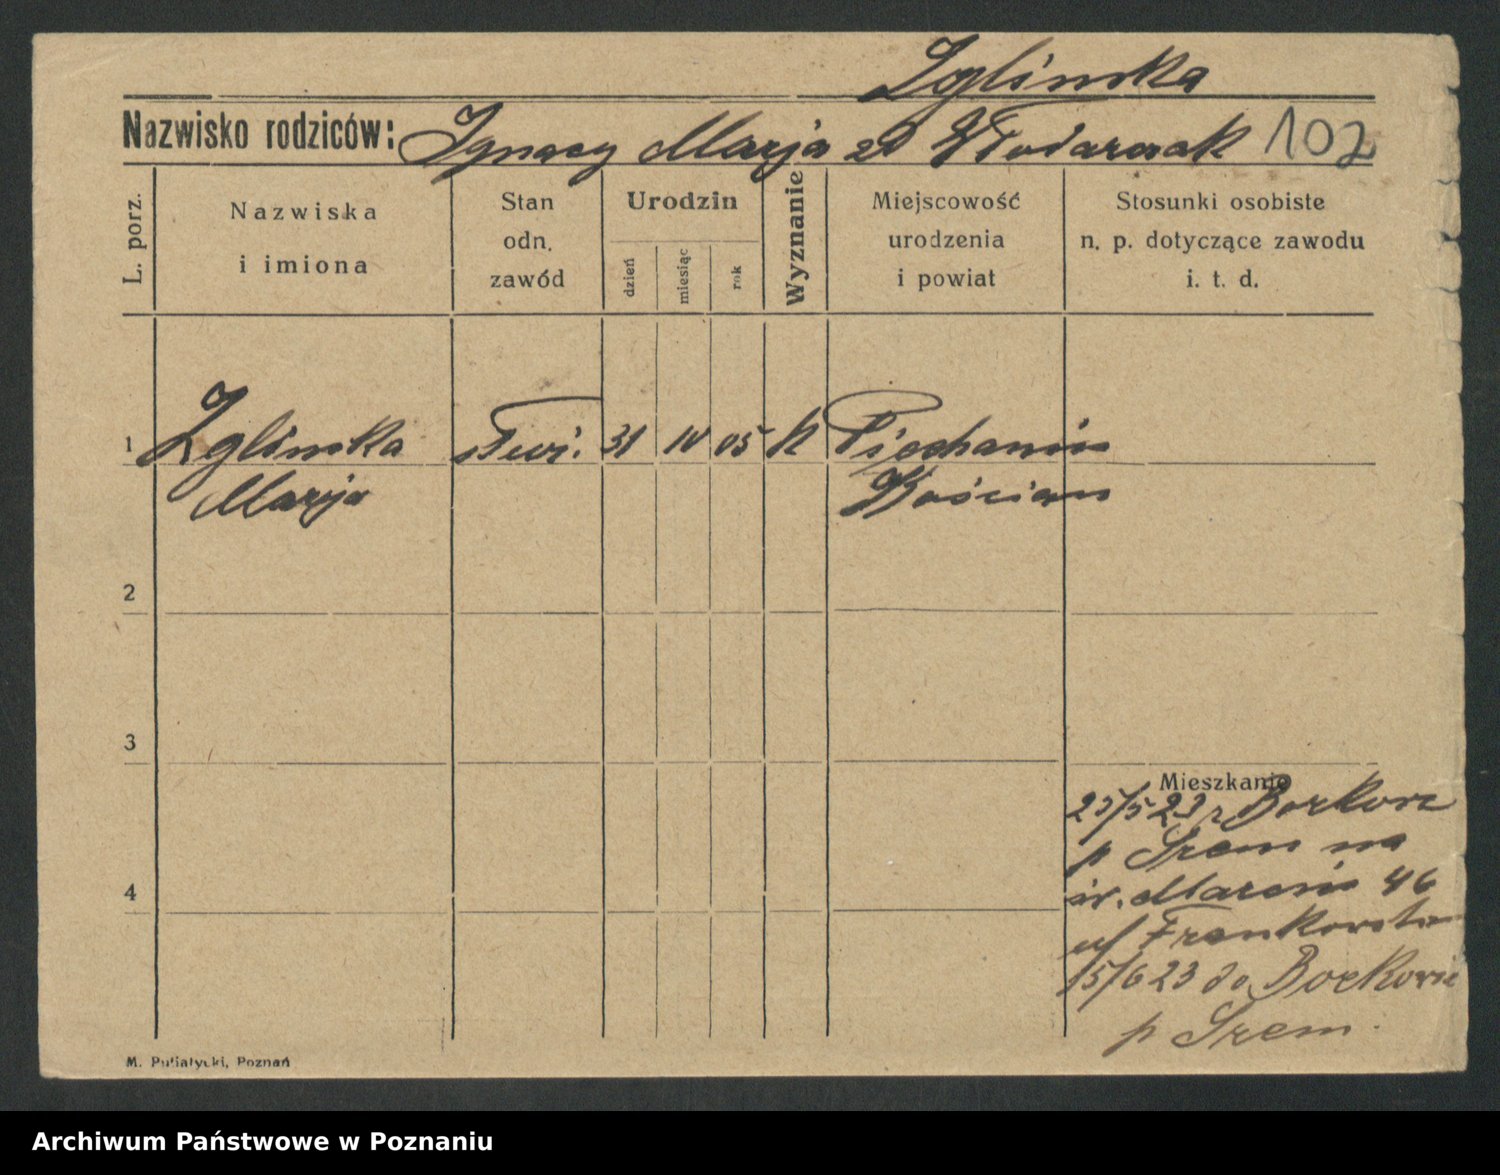 Zglinska
Nazwisko rodziców: Ignacy Marja zd Włodarczak 102
L. porz.
Nazwiska
i imiona
Stan
odn.
zawód
Urodzin
dzień
miesiąc
rok
Wyznanie
Miejscowość
urodzenia
i powiat
Stosunki osobiste
n. p. dotyczące zawodu
i. t. d.
1 Zglinska 31 IV 05 K Piechanin
Marja Kościan
2
3
Mieszkanie
25/5 23 z Borkowic
p Śrem na
św. Marcin 46
4
15/6 23 do Borkowic
p Śrem
M. Pusiatycki, Poznań
Archiwum Państwowe w Poznaniu